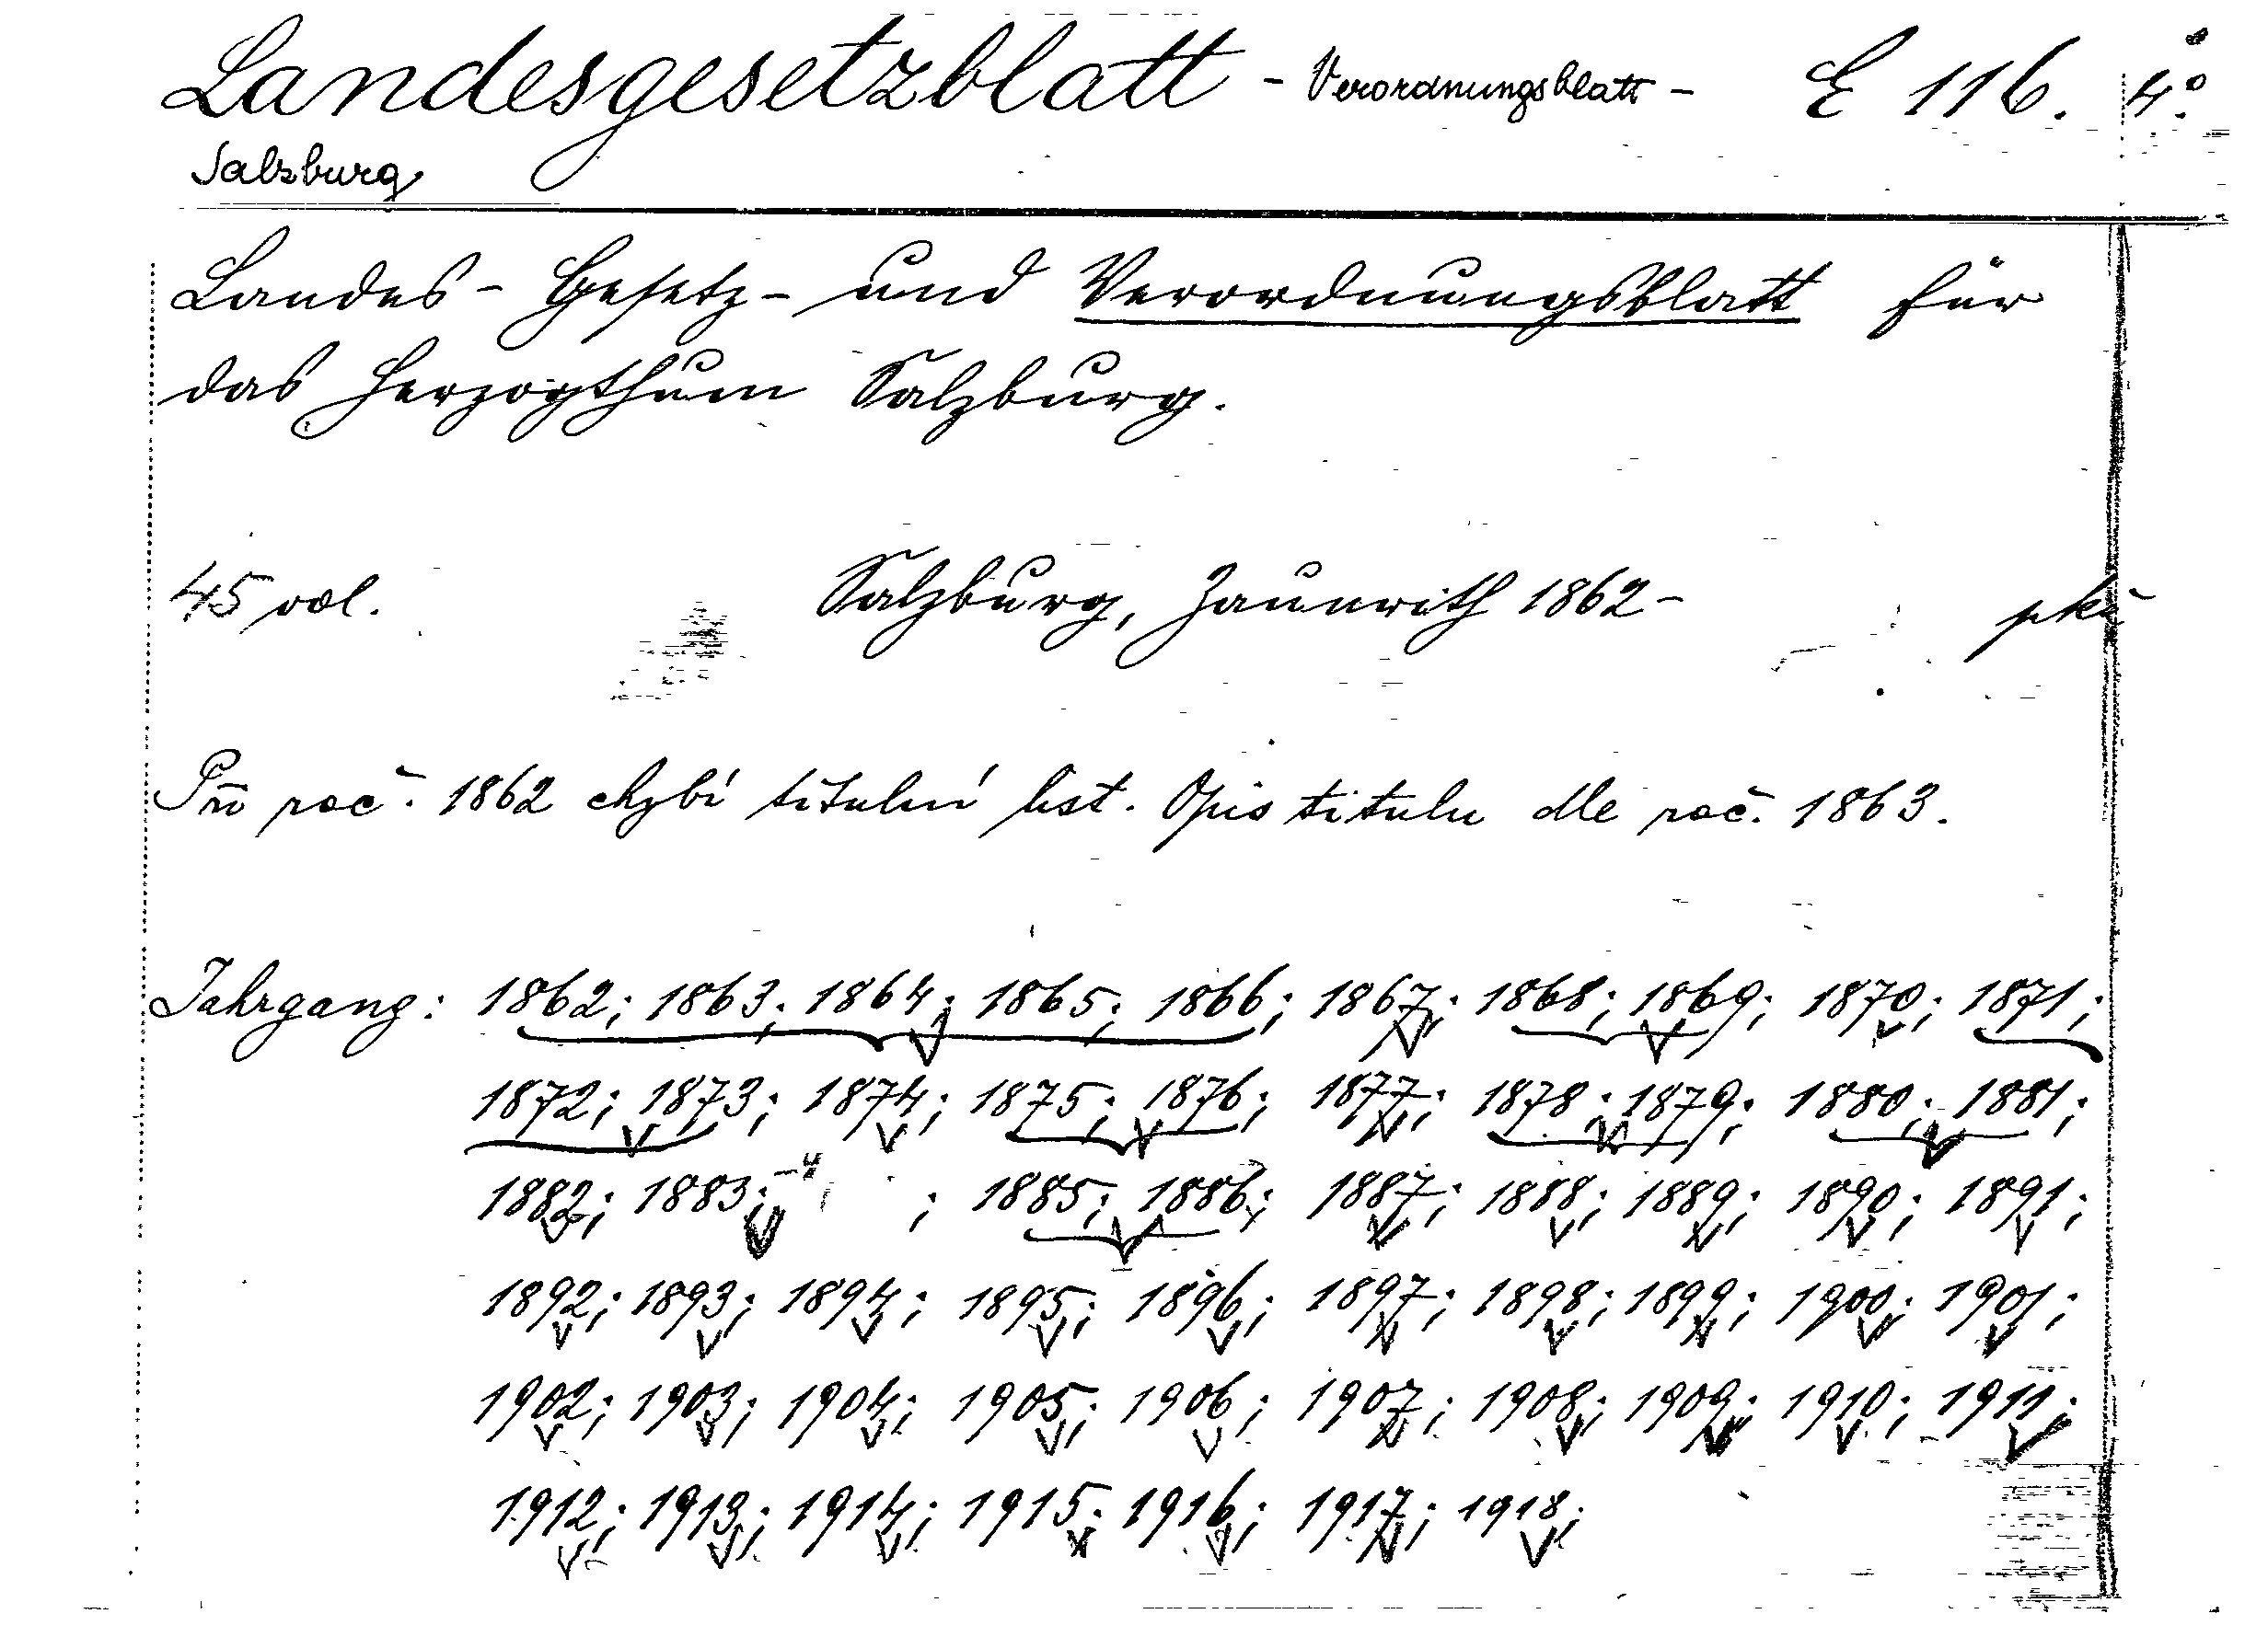 Landesgesetzblatt - Verordnungsblatt - E 116. 4°.
Salzburg
Landes-Gesetz- und Verordnungsblatt für
das Herzogthum Salzburg.
45 vol. Salzburg, Zaunrith 1862-
Při roč. 1862 chybí titulní list. Opis titulu dle roč. 1863.
Jahrgang: 1862; 1863; 1864; 1865; 1866; 1867; 1868; 1869; 1870; 1871;
1872; 1873; 1874; 1875; 1876; 1877; 1878; 1879; 1880; 1881;
1882; 1883; -4 ; 1885; 1886; 1887; 1888; 1889; 1890; 1891;
1892; 1893; 1894; 1895; 1896; 1897; 1898; 1899; 1900; 1901;
1902; 1903; 1904; 1905; 1906; 1907; 1908; 1909; 1910; 1911;
1912; 1913; 1914; 1915; 1916; 1917; 1918;